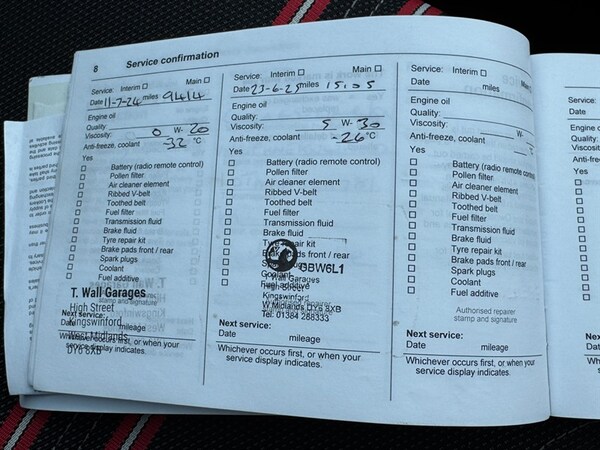 8 Service confirmation
Service: Interim Main
Date 11-7-24 miles 9414
Engine oil
Quality:
Viscosity: 0 W- 20
Anti-freeze, coolant -32 °C
Yes
Battery (radio remote control)
Pollen filter
Air cleaner element
Ribbed V-belt
Toothed belt
Fuel filter
Transmission fluid
Brake fluid
Tyre repair kit
Brake pads front / rear
Spark plugs
Coolant
Fuel additive
T. Wall Garages
High Street
Kingswinford
West Midlands
DY6 8XB
stamp and signature
Next service:
Date mileage
Whichever occurs first, or when your
service display indicates.
Service: Interim Main
Date 23-6-25 miles 15105
Engine oil
Quality:
Viscosity: 5 W- 30
Anti-freeze, coolant -26 °C
Yes
Battery (radio remote control)
Pollen filter
Air cleaner element
Ribbed V-belt
Toothed belt
Fuel filter
Transmission fluid
Brake fluid
Tyre repair kit
Brake pads front / rear
Spark plugs
Coolant
Fuel additive
GBW6L1
T Wall Garages
High Street
Kingswinford
W.Midlands DY6 8XB
Tel: 01384 288333
Next service:
Date mileage
Whichever occurs first, or when your
service display indicates.
Service: Interim Main
Date miles
Engine oil
Quality:
Viscosity: W-
Anti-freeze, coolant °C
Yes
Battery (radio remote control)
Pollen filter
Air cleaner element
Ribbed V-belt
Toothed belt
Fuel filter
Transmission fluid
Brake fluid
Tyre repair kit
Brake pads front / rear
Spark plugs
Coolant
Fuel additive
Authorised repairer
stamp and signature
Next service:
Date mileage
Whichever occurs first, or when your
service display indicates.
Service:
Date
Engine oil
Quality:
Viscosity:
Yes
Next
Date